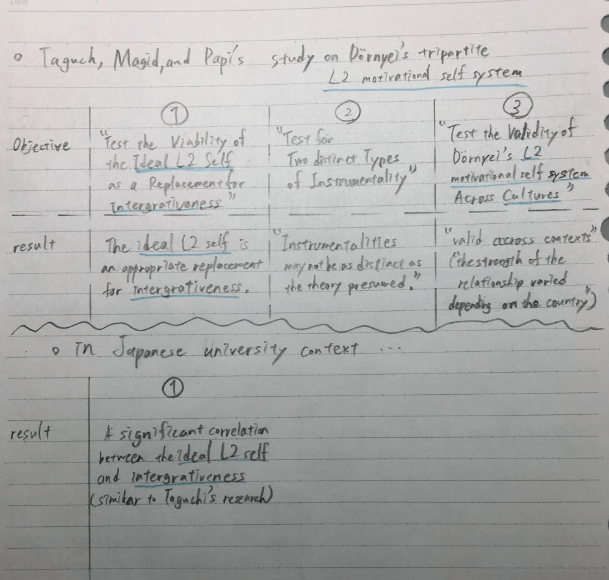 o Taguch, Magid, and Papi's study on Dörnyei's tripartite
L2 motivational self system
① ② ③
Objective
"Test the Viability of
the Ideal L2 Self
as a Replacement for
Intergrativeness"
"Test for
Two distinct Types
of Instrumentality"
"Test the Validity of
Dörnyei's L2
motivational self system
Across Cultures"
result
The ideal L2 self is
an appropriate replacement
for intergrativeness.
"Instrumentalities
may not be as distinct as
the theory presumed."
"valid across contexts"
("the strength of the
relationship varied
depending on the country")
o in Japanese university context ...
①
result
A significant correlation
between the ideal L2 self
and intergrativeness
(similar to Taguchi's research)